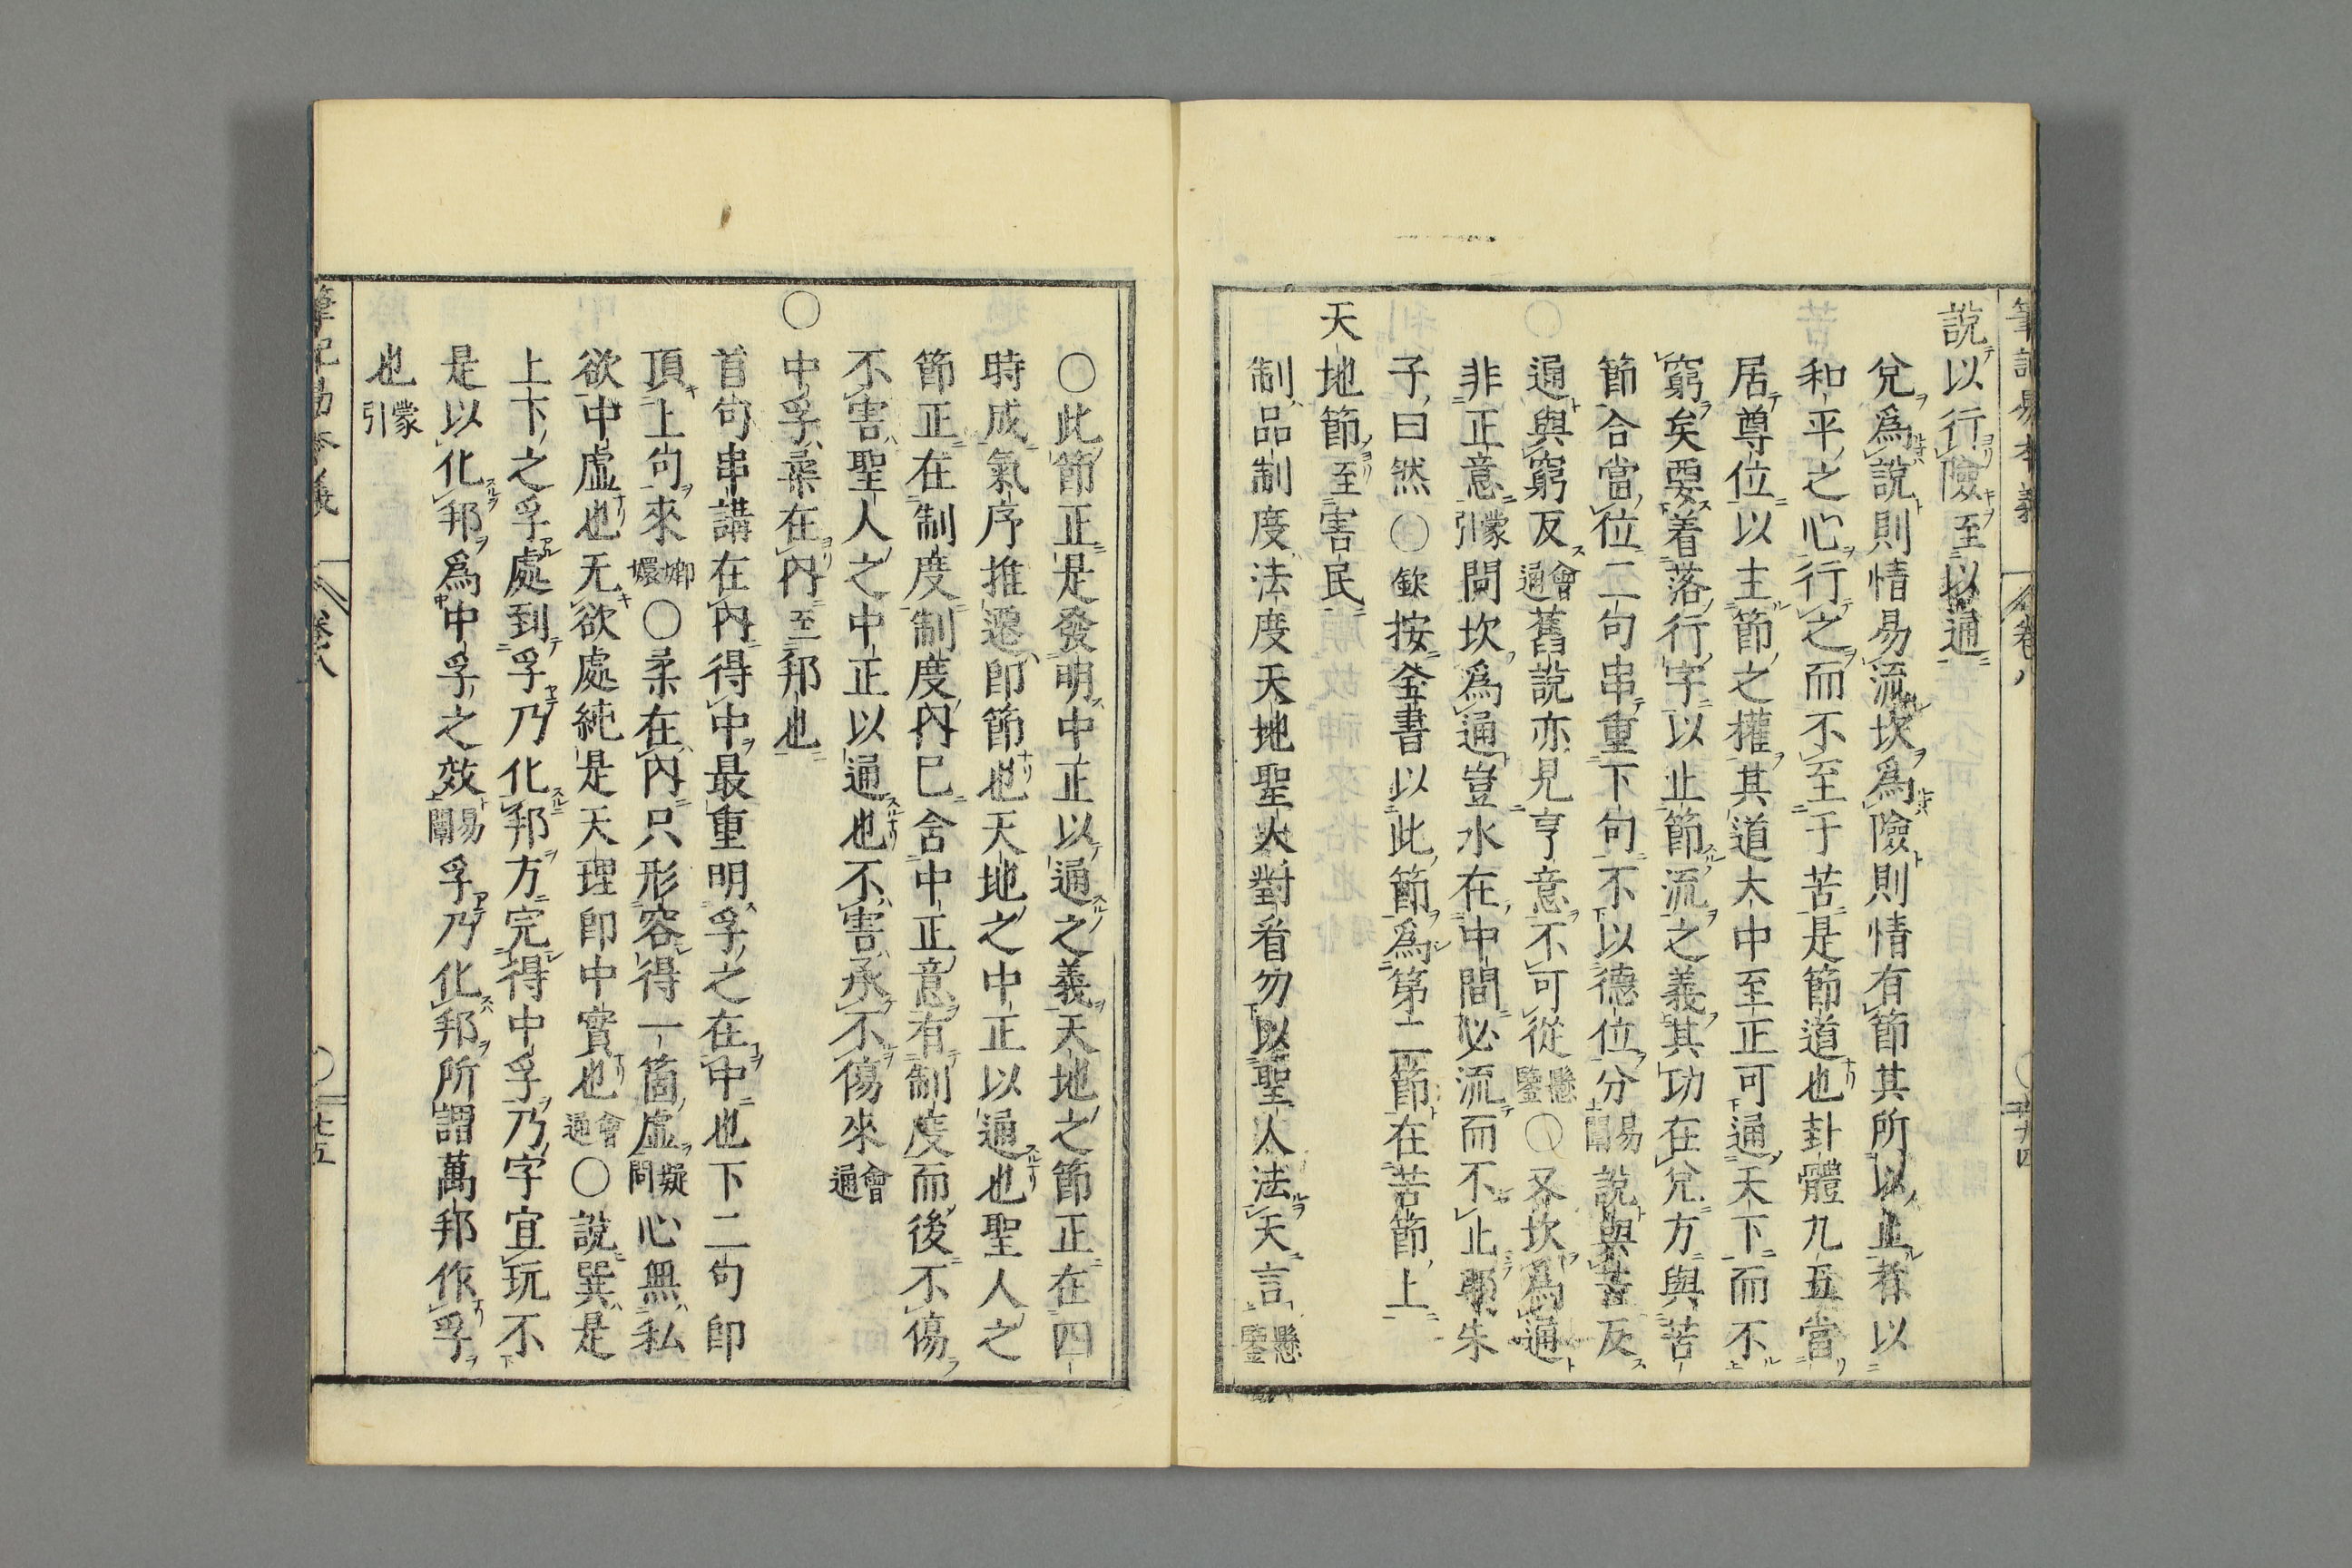 說以行險至以通
兌爲說則情易流坎爲險則情有節其所以止者以
和平之心行之而不至于苦是節道也卦體九五當
居尊位以主節之權其道大中至正可通天下而不
窮矣要着落行字以止節流之義其功在兌方與苦
節合當位二句串重下句不以德位分易闡說與苦反
通與窮反會通舊說亦見亨意不可從懸鑒○又坎爲通
非正意蒙引問坎爲通豈水在中間必流而不止耶朱
子曰然○欽按全書以此節爲第二節在苦節上
天地節至害民
制品制度法度天地聖人對看勿以聖人法天言懸鑒
○此節正是發明中正以通之義天地之節正在四
時成氣序推遷即節也天地之中正以通也聖人之
節正在制度制度內已含中正意有制度而後不傷
不害聖人之中正以通也不害承不傷來會通
○中孚柔在內至邦也
首句串講在內得中最重明孚之在中也下二句即
頂上句來嫏嬛○柔在內只形容得一箇虛疑問心無私
欲中虛也无欲處純是天理即中實也會通○說巽是
上下之孚處到孚乃化邦方完得中孚乃字宜玩不
是以化邦爲中孚之效易闡孚乃化邦所謂萬邦作孚
也蒙引
筆記易本義
卷八
七五